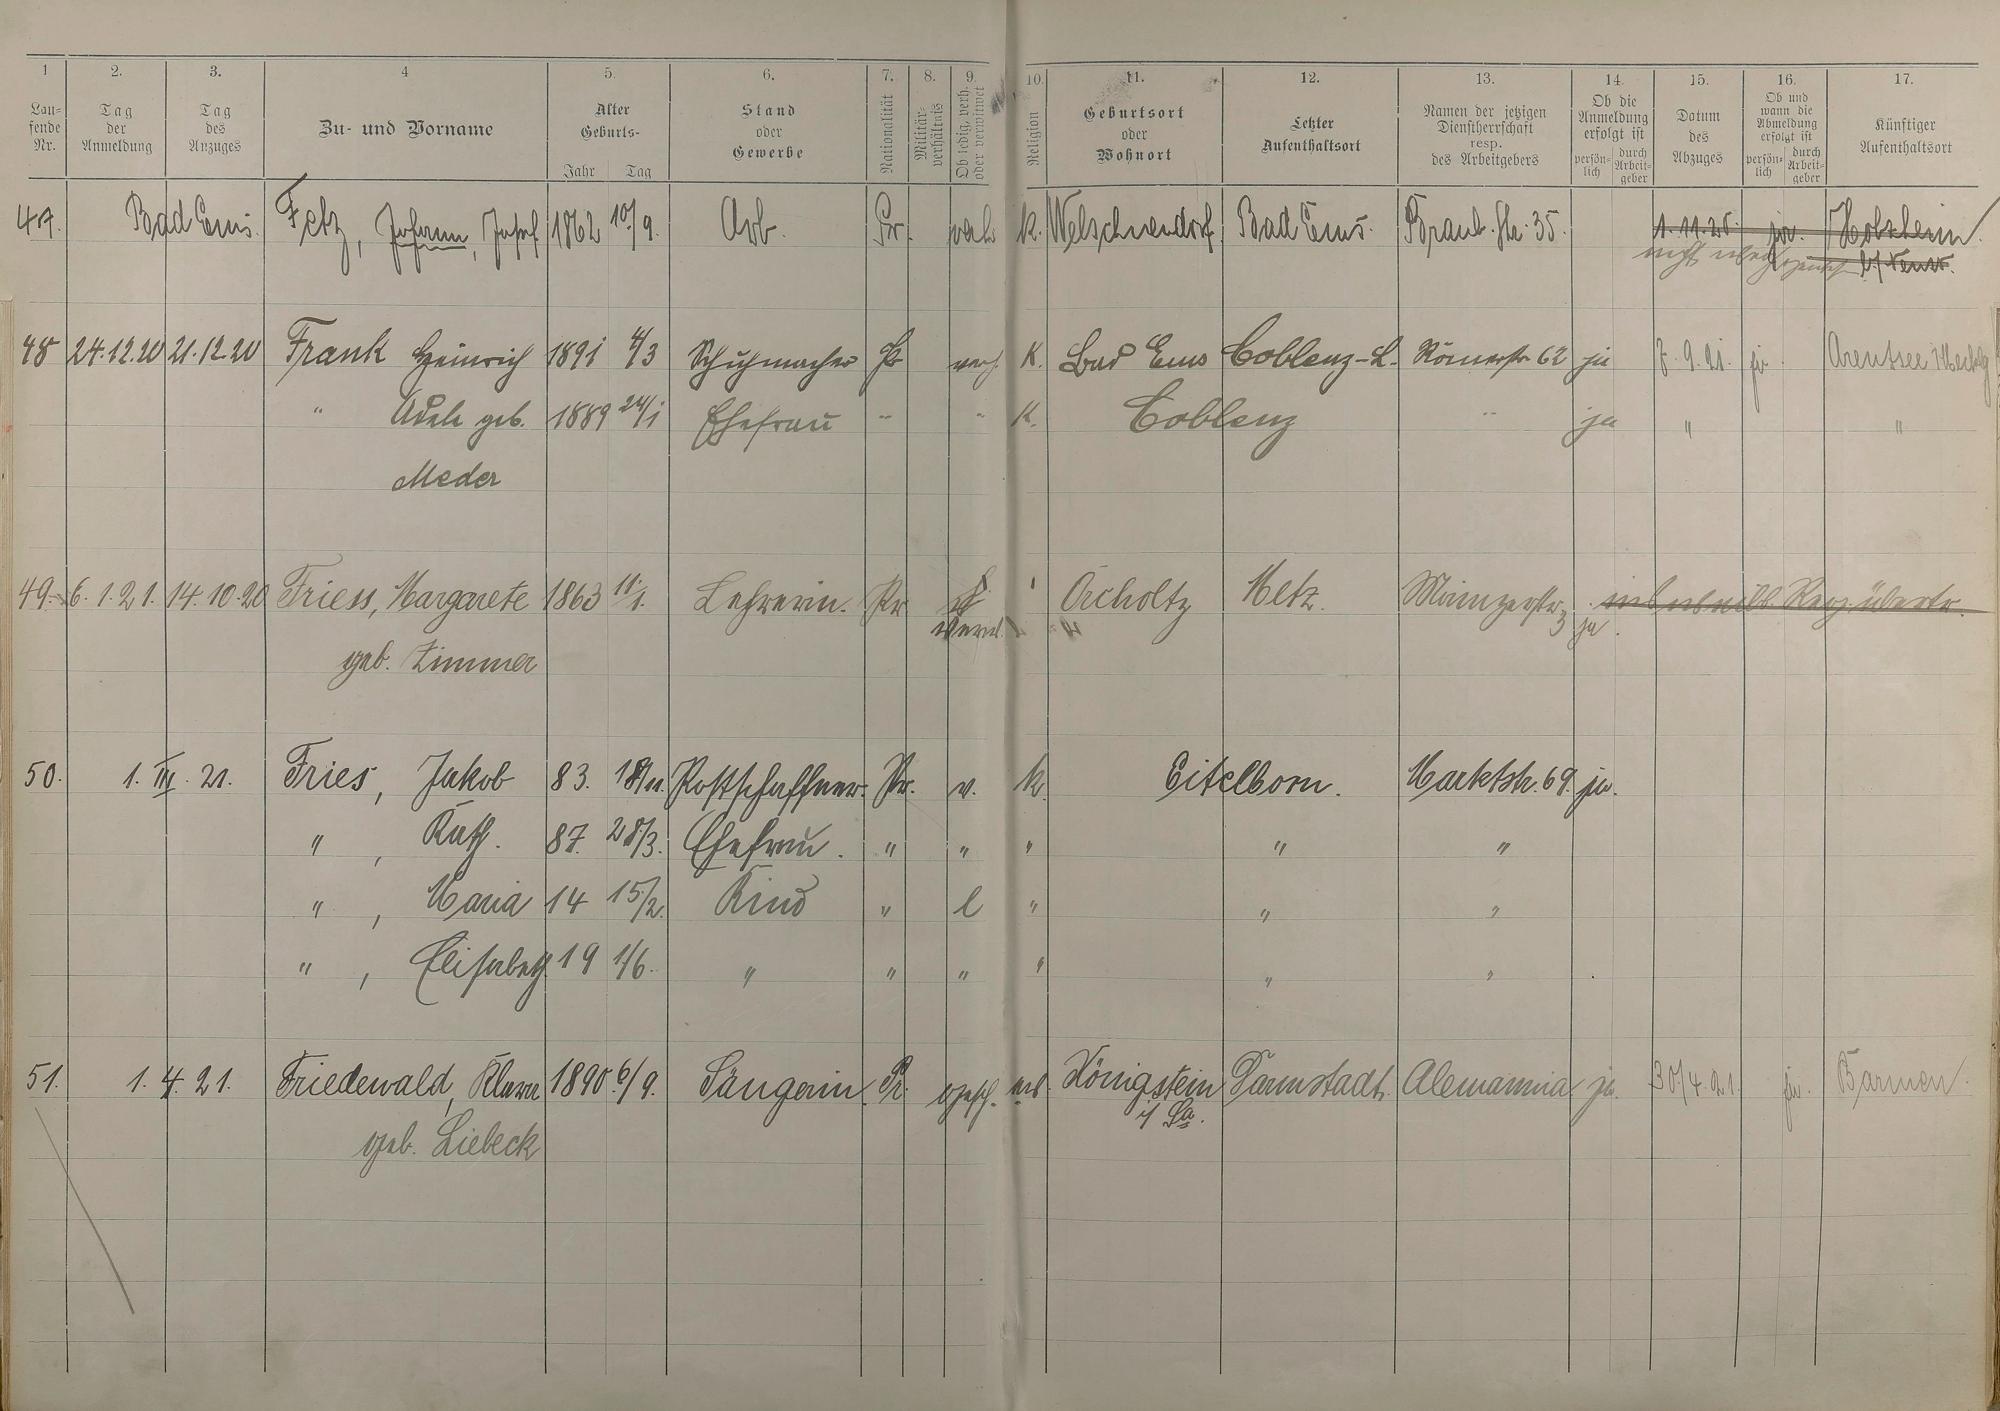 1 2. 3. 4 5. 6. 7. 8. 9. 10. 11. 12. 13. 14. 15. 16. 17.
Laufende Nr. Tag der Anmeldung Tag des Anzuges Zu- und Vorname Alter Geburts- Jahr Tag Stand oder Gewerbe Nationalität Militärverhältnis Ob ledig, verh. oder verwitwet Religion Geburtsort oder Wohnort Letzter Aufenthaltsort Namen der jetzigen Dienstherrschaft resp. des Arbeitgebers Ob die Anmeldung erfolgt ist persönlich durch Arbeitgeber Datum des Abzuges Ob und wann die Abmeldung erfolgt ist persönlich durch Arbeitgeber Künftiger Aufenthaltsort
47. Bad Ems. Fetz, Johann, Josef 1862 10/9. Arb. Pr. verh. K. Welschneudorf Bad Ems. Braub. Str. 35. 1.11.25. ja. Holzheim
nicht
48 24.12.20 21.12.20 Frank Heinrich 1891 4/3 Schuhmacher Pr verh. K. Bad Ems Coblenz-L. Römerstr 62 ja 7.9.21. ja. Arentsee
" Adele geb. 1889 24/1 Ehefrau " " K. Coblenz " ja " "
Meder
49. 6.1.21. 14.10.20 Friess, Margarete 1863 11/1. Lehrerin. Pr Metz.
ja.
geb. Zimmer
50. 1. III. 21. Fries, Jakob 83. 18/11. Postschaffner. Pr. v. k. Eitelborn. Marktstr. 69. ja.
" , Kath. 87. 28/3. Ehefrau. " " " " "
" , Maria 14 15/2. Kind " l " " "
" , Elisabeth 19 1/6. " " " " " "
51. 1.4.21. Friedewald, Klara 1890 6/9. Sängerin Pr. gesch. Königstein Darmstadt. Alemannia ja. 30/4.21. ja. Barmen.
i/ Sa.
geb. Liebeck